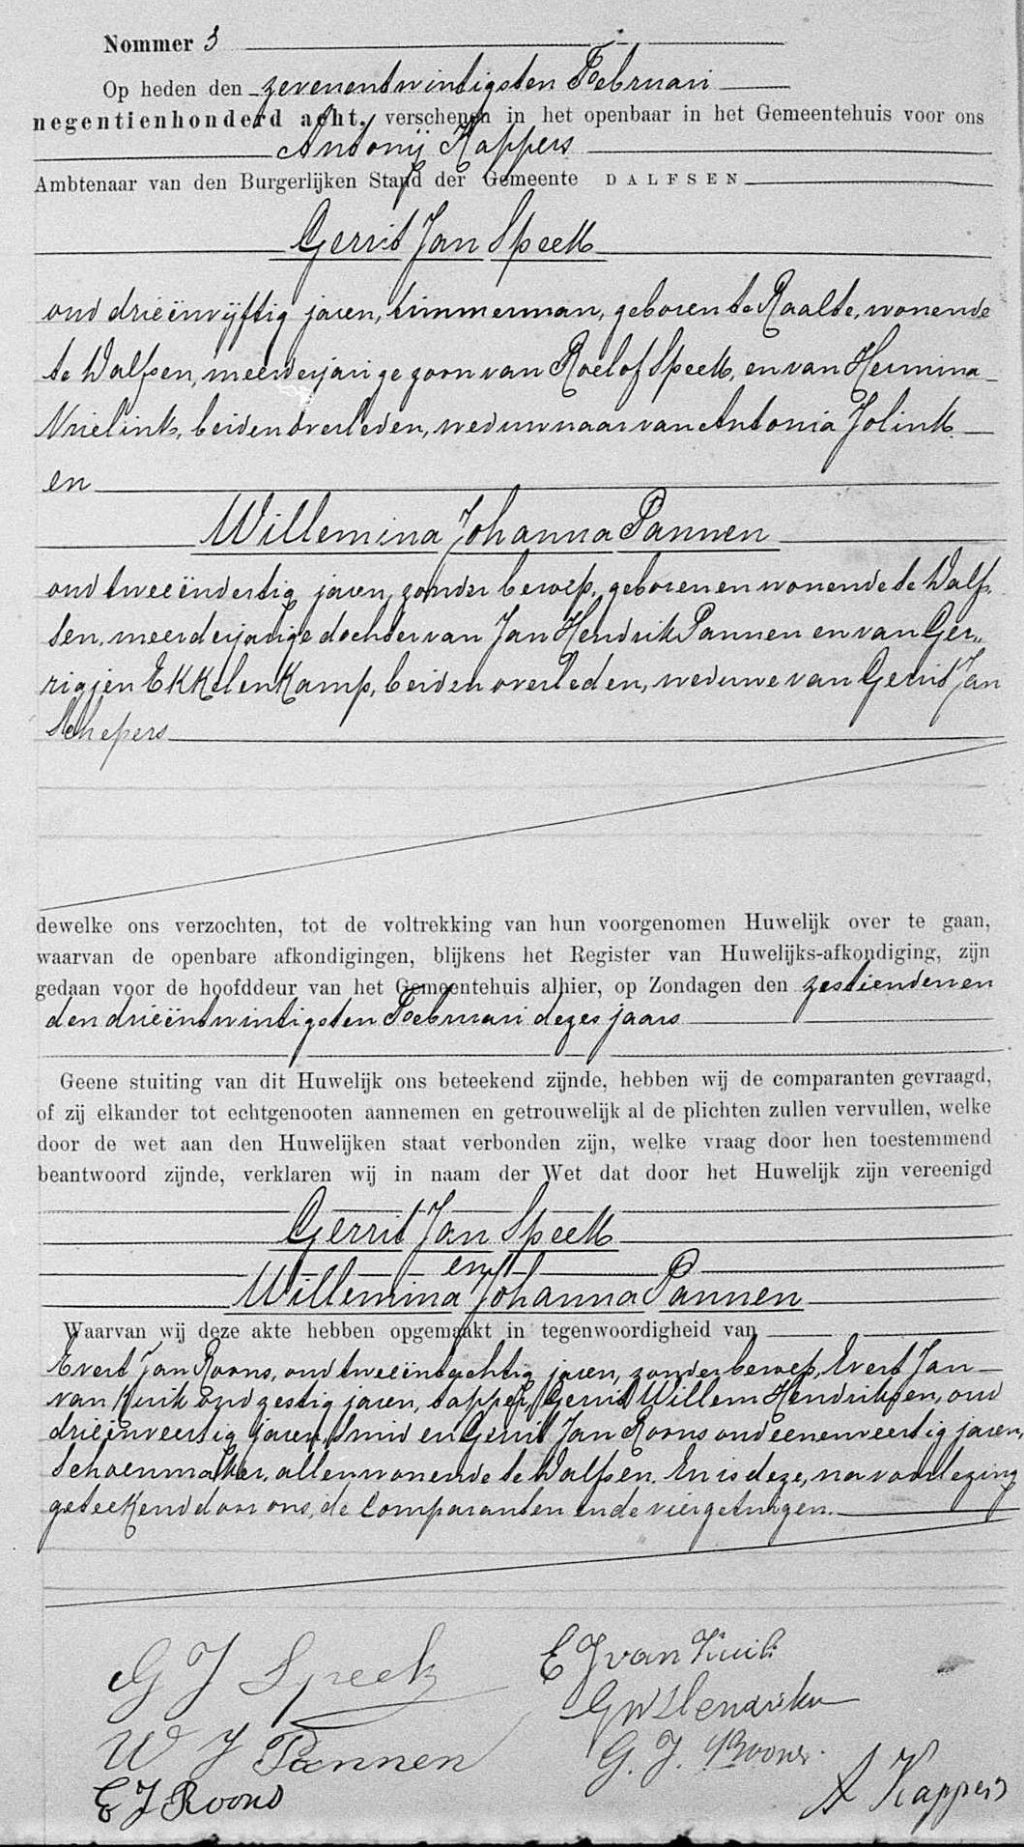 Nommer 3
Op heden den zevenentwintigsten Februari
negentienhonderd acht, verschenen in het openbaar in het Gemeentehuis voor ons
Antonij Kappers
Ambtenaar van den Burgerlijken Stand der Gemeente DALFSEN
Gerrit Jan Speek
oud drieënvijftig jaren, timmerman, geboren te Raalte, wonende
te Dalfsen, meerderjarige zoon van Roelof Speek, en van Hermina
Vrielink, beiden overleden, weduwnaar van Antonia Jolink
en
Willemina Johanna Pannen
oud tweeëndertig jaren, zonder beroep, geboren en wonende te Dalf-
sen, meerderjarige dochter van Jan Hendrik Pannen en van Ger-
rigjen Ekkelenkamp, beiden overleden, weduwe van Gerrit Jan
Schepers
dewelke ons verzochten, tot de voltrekking van hun voorgenomen Huwelijk over te gaan,
waarvan de openbare afkondigingen, blijkens het Register van Huwelijks-afkondiging, zijn
gedaan voor de hoofddeur van het Gemeentehuis alhier, op Zondagen den zestienden en
den drieëntwintigsten Februari dezes jaars
Geene stuiting van dit Huwelijk ons beteekend zijnde, hebben wij de comparanten gevraagd,
of zij elkander tot echtgenooten aannemen en getrouwelijk al de plichten zullen vervullen, welke
door de wet aan den Huwelijken staat verbonden zijn, welke vraag door hen toestemmend
beantwoord zijnde, verklaren wij in naam der Wet dat door het Huwelijk zijn vereenigd
Gerrit Jan Speek
en
Willemina Johanna Pannen
Waarvan wij deze akte hebben opgemaakt in tegenwoordigheid van
Evert Jan Roons, oud tweeëntachtig jaren, zonder beroep, Evert Jan
van Kuik oud zestig jaren, tapper, Gerrit Willem Hendriksen, oud
drieënveertig jaren, smid en Gerrit Jan Roons oud eenenveertig jaren,
schoenmaker, allen wonende te Dalfsen. En is deze, na voorlezing
geteekend door ons, de comparanten en de vier getuigen.
G J Speek
E J van Kuik
G W Hendriksen
W J Pannen
G. J. Roons.
E J Roons
A Kappers